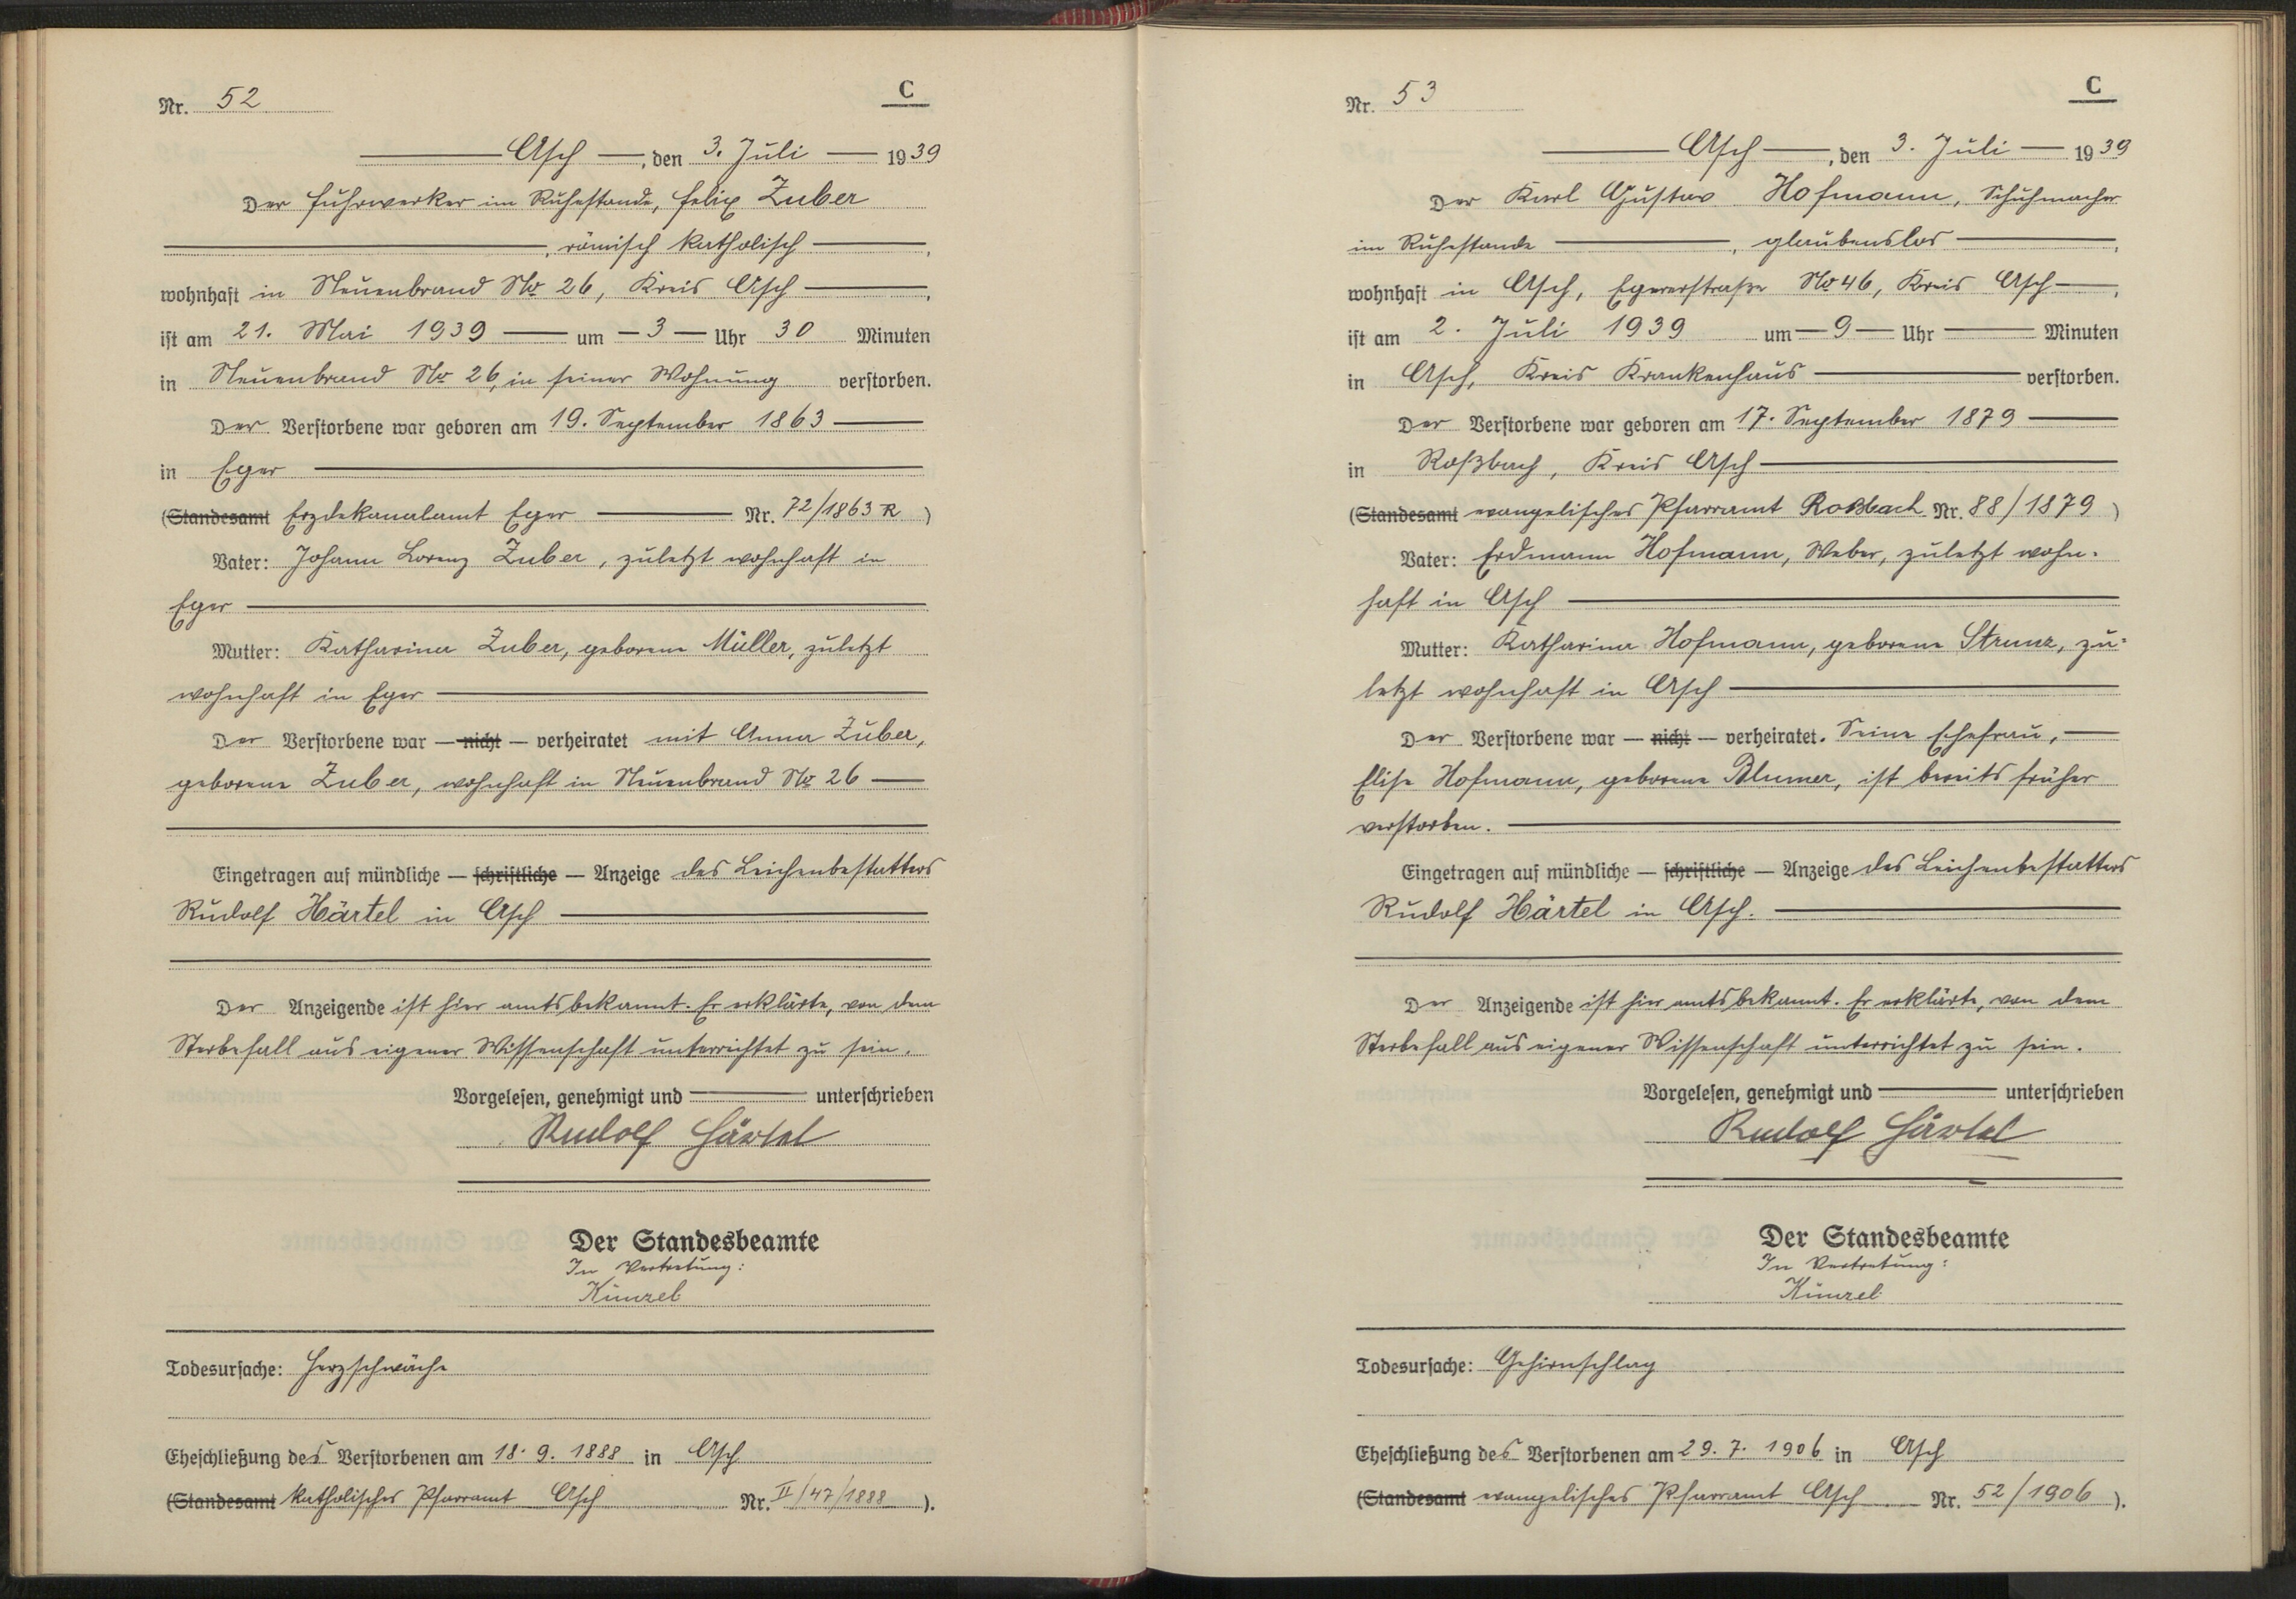 Nr. 52
C
Asch, den 3. Juli 1939
Der Fuhrwerker im Ruhestande, Felix Zuber
, römisch katholisch ,
wohnhaft in Neuenbrand No 26, Kreis Asch ,
ist am 21. Mai 1939 um 3 Uhr 30 Minuten
in Neuenbrand No 26, in seiner Wohnung verstorben.
Der Verstorbene war geboren am 19. September 1863
in Eger
(Standesamt Erzdekanalamt Eger Nr. 72/1863 R )
Vater: Johann Lorenz Zuber, zuletzt wohnhaft in
Eger
Mutter: Katharina Zuber, geborene Müller, zuletzt
wohnhaft in Eger
Der Verstorbene war — nicht — verheiratet mit Anna Zuber,
geborene Zuber, wohnhaft in Neuenbrand No 26
Eingetragen auf mündliche — schriftliche — Anzeige des Leichenbestatters
Rudolf Härtel in Asch
Der Anzeigende ist hier amtsbekannt. Er erklärte, von dem
Sterbefall aus eigener Wissenschaft unterrichtet zu sein.
Vorgelesen, genehmigt und unterschrieben
Rudolf Härtel
Der Standesbeamte
In Vertretung:
Künzel
Todesursache: Herzschwäche
Eheschließung des Verstorbenen am 18. 9. 1888 in Asch
(Standesamt katholisches Pfarramt Asch Nr. II/47/1888 ).
Nr. 53
C
Asch, den 3. Juli 1939
Der Karl Gustav Hofmann, Schuhmacher
im Ruhestande , glaubenslos ,
wohnhaft in Asch, Egererstraße No 46, Kreis Asch ,
ist am 2. Juli 1939 um 9 Uhr Minuten
in Asch, Kreis Krankenhaus verstorben.
Der Verstorbene war geboren am 17. September 1879
in Roßbach, Kreis Asch
(Standesamt evangelisches Pfarramt Roßbach Nr. 88/1879 )
Vater: Erdmann Hofmann, Weber, zuletzt wohn-
haft in Asch
Mutter: Katharina Hofmann, geborene Strunz, zu-
letzt wohnhaft in Asch
Der Verstorbene war — nicht — verheiratet. Seine Ehefrau,
Elise Hofmann, geborene Blumer, ist bereits früher
verstorben.
Eingetragen auf mündliche — schriftliche — Anzeige des Leichenbestatters
Rudolf Härtel in Asch.
Der Anzeigende ist hier amtsbekannt. Er erklärte, von dem
Sterbefall aus eigener Wissenschaft unterrichtet zu sein.
Vorgelesen, genehmigt und unterschrieben
Rudolf Härtel
Der Standesbeamte
In Vertretung:
Künzel
Todesursache: Gehirnschlag
Eheschließung des Verstorbenen am 29. 7. 1906 in Asch
(Standesamt evangelisches Pfarramt Asch Nr. 52/1906 ).